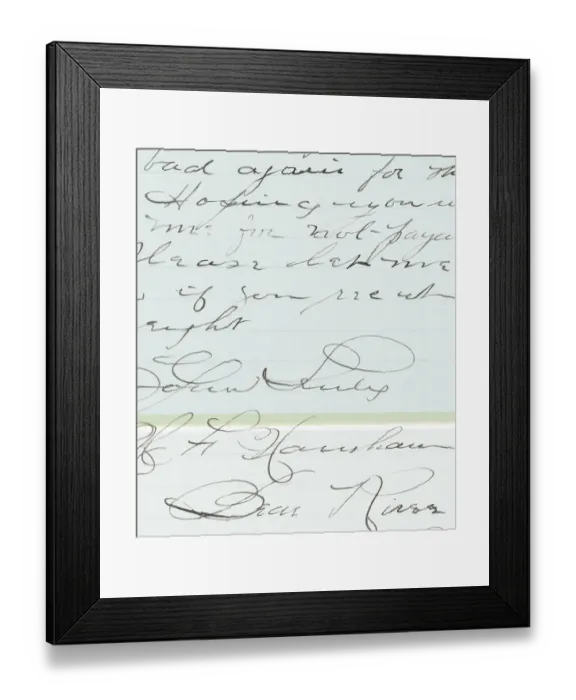 bad again for th
Hoping you w
me for not paya
Please let me
if you rec th
right
John
H F Hanshaw
Bear River